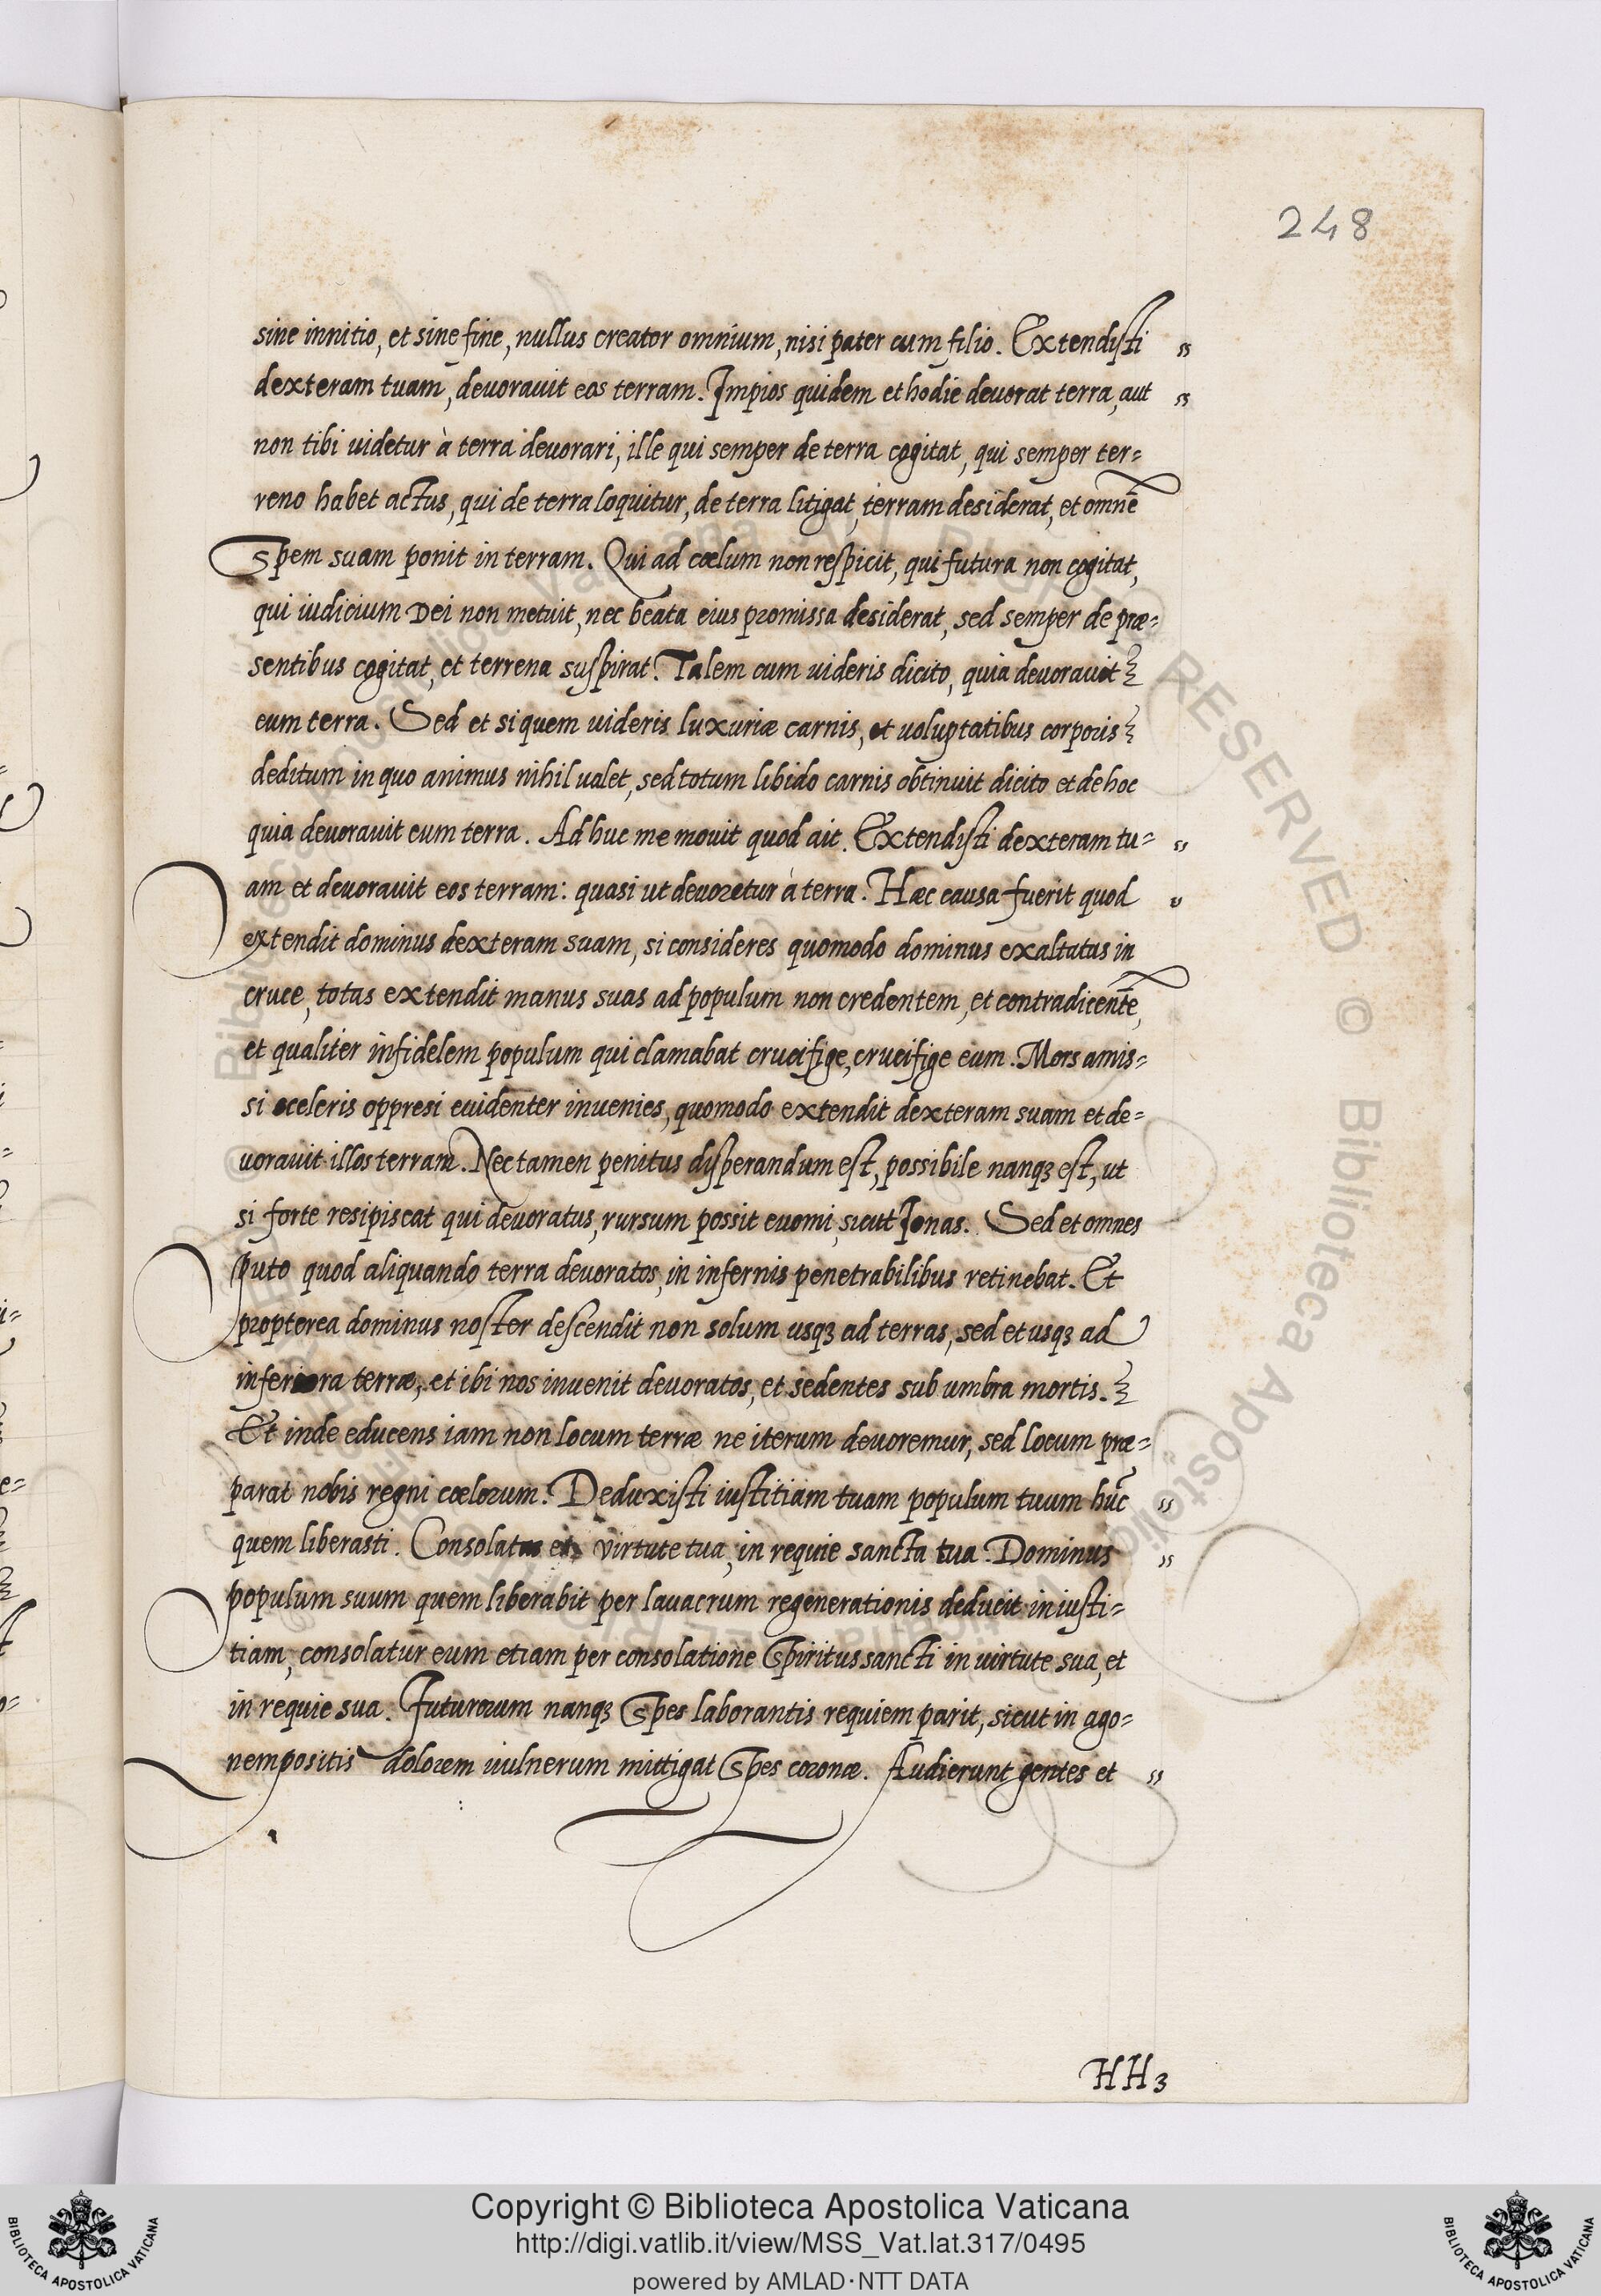 248
sine innitio, et sine fine, nullus creator omnium, nisi pater cum filio. Extendisti "
dexteram tuam, devoravit eos terram. Impios quidem et hodie devorat terra, aut "
non tibi videtur à terra devorari, ille qui semper de terra cogitat, qui semper ter=
reno habet actus, qui de terra loquitur, de terra litigat, terram desiderat, et omnē
spem suam ponit in terram. Qui ad cœlum non respicit, qui futura non cogitat,
qui iudicium Dei non metuit, nec beata eius promissa desiderat, sed semper de præ=
sentibus cogitat, et terrena suspirat. Talem cum uideris dicito, quia devoravit
eum terra. Sed et si quem uideris luxuriæ carnis, et uoluptatibus corporis
deditum in quo animus nihil ualet, sed totum libido carnis obtinuit dicito et de hoc
quia devoravit eum terra. Ad huc me movit quod ait. Extendisti dexteram tu= "
am et devoravit eos terram: quasi ut devoretur à terra. Hæc causa fuerit quod
extendit dominus dexteram suam, si consideres quomodo dominus exaltatus in
cruce, totas extendit manus suas ad populum non credentem, et contradicentē,
et qualiter infidelem populum qui clamabat crucifige, crucifige eum. Mors amis=
si sceleris oppresi euidenter inuenies, quomodo extendit dexteram suam et de=
uorauit illos terram. Nec tamen penitus disperandum est, possibile nanqꝫ est, ut
si forte resipiscat qui devoratus, rursum possit evomi, sicut Jonas. Sed et omnes
puto quod aliquando terra devoratos, in infernis penetrabilibus retinebat. Et
propterea dominus noster descendit non solum usqꝫ ad terras, sed et usqꝫ ad
inferiora terræ, et ibi nos invenit devoratos, et sedentes sub umbra mortis.
Et inde educens iam non locum terræ ne iterum devoremur, sed locum præ=
parat nobis regni cœlorum. Deduxisti iustitiam tuam populum tuum hūc "
quem liberasti. Consolatus es virtute tua, in requie sancta tua. Dominus "
populum suum quem liberabit per lavacrum regenerationis deducit in iusti=
tiam, consolatur eum etiam per consolatione Spiritus sancti in uirtute sua, et
in requie sua. Futurorum nanqꝫ Spes laborantis requiem parit, sicut in ago=
nem positis dolorem uulnerum mittigat Spes coronæ. Audierunt gentes et "
HH3
Copyright © Biblioteca Apostolica Vaticana
http://digi.vatlib.it/view/MSS_Vat.lat.317/0495
powered by AMLAD·NTT DATA
BIBLIOTECA APOSTOLICA VATICANA
BIBLIOTECA APOSTOLICA VATICANA